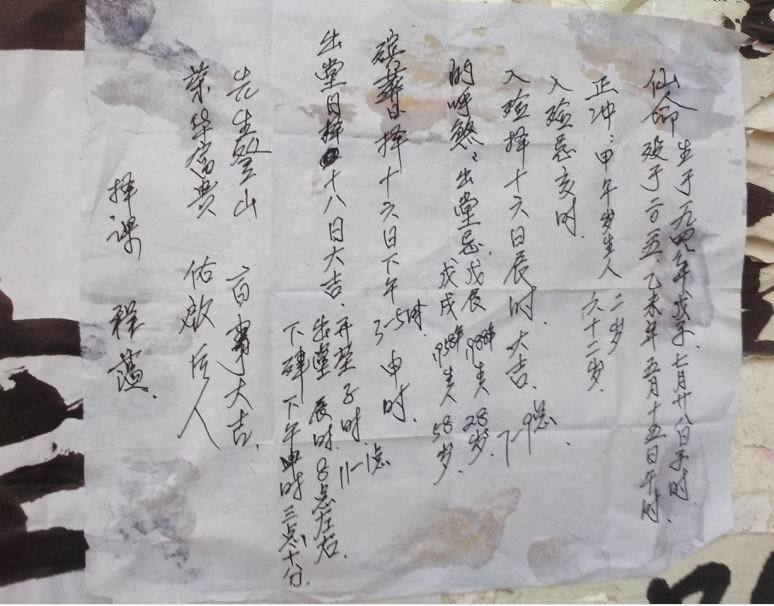 仙命生于一九四八年戊子、七月廿八日子时.
殁于二0一五、乙未年五月十五日午时.
正冲:甲午岁生人 二岁
六十二岁.
入殓忌亥时.
入殓择十六日辰时.大吉. 7-9点
的呼煞:出堂忌.戊辰 1988年生人 28岁.
戊戌 1958年生人 58岁.
殡葬日择十六日下午3-5时.申时.
出堂日择十八日大吉.
子时. 11-1点
出堂 辰时.8点左右.
下肂 下午申时三点十分.
先生登山 百事大吉.
荣华富贵 佑启后人
择课 程